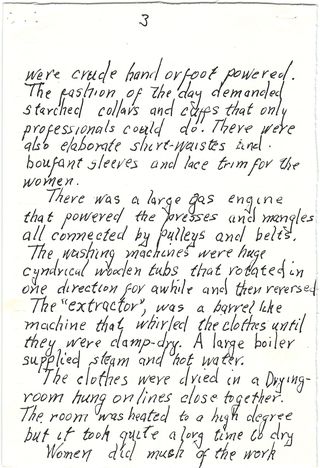 3
were crude hand or foot powered.
The fashion of the day demanded
starched collars and cuffs that only
professionals could do. There were
also elaborate shirt-waistes and
boufant sleeves and lace trim for the
women.
There was a large gas engine
that powered the presses and mangles
all connected by pulleys and belts.
The washing machines were huge
cyndrical wooden tubs that rotated in
one direction for awhile and then reversed
The "extractor", was a barrel like
machine that whirled the clothes until
they were damp-dry. A large boiler
supplied steam and hot water.
The clothes were dried in a Drying-
room hung on lines close together.
The room was heated to a high degree
but it took quite a long time to dry
Women did much of the work